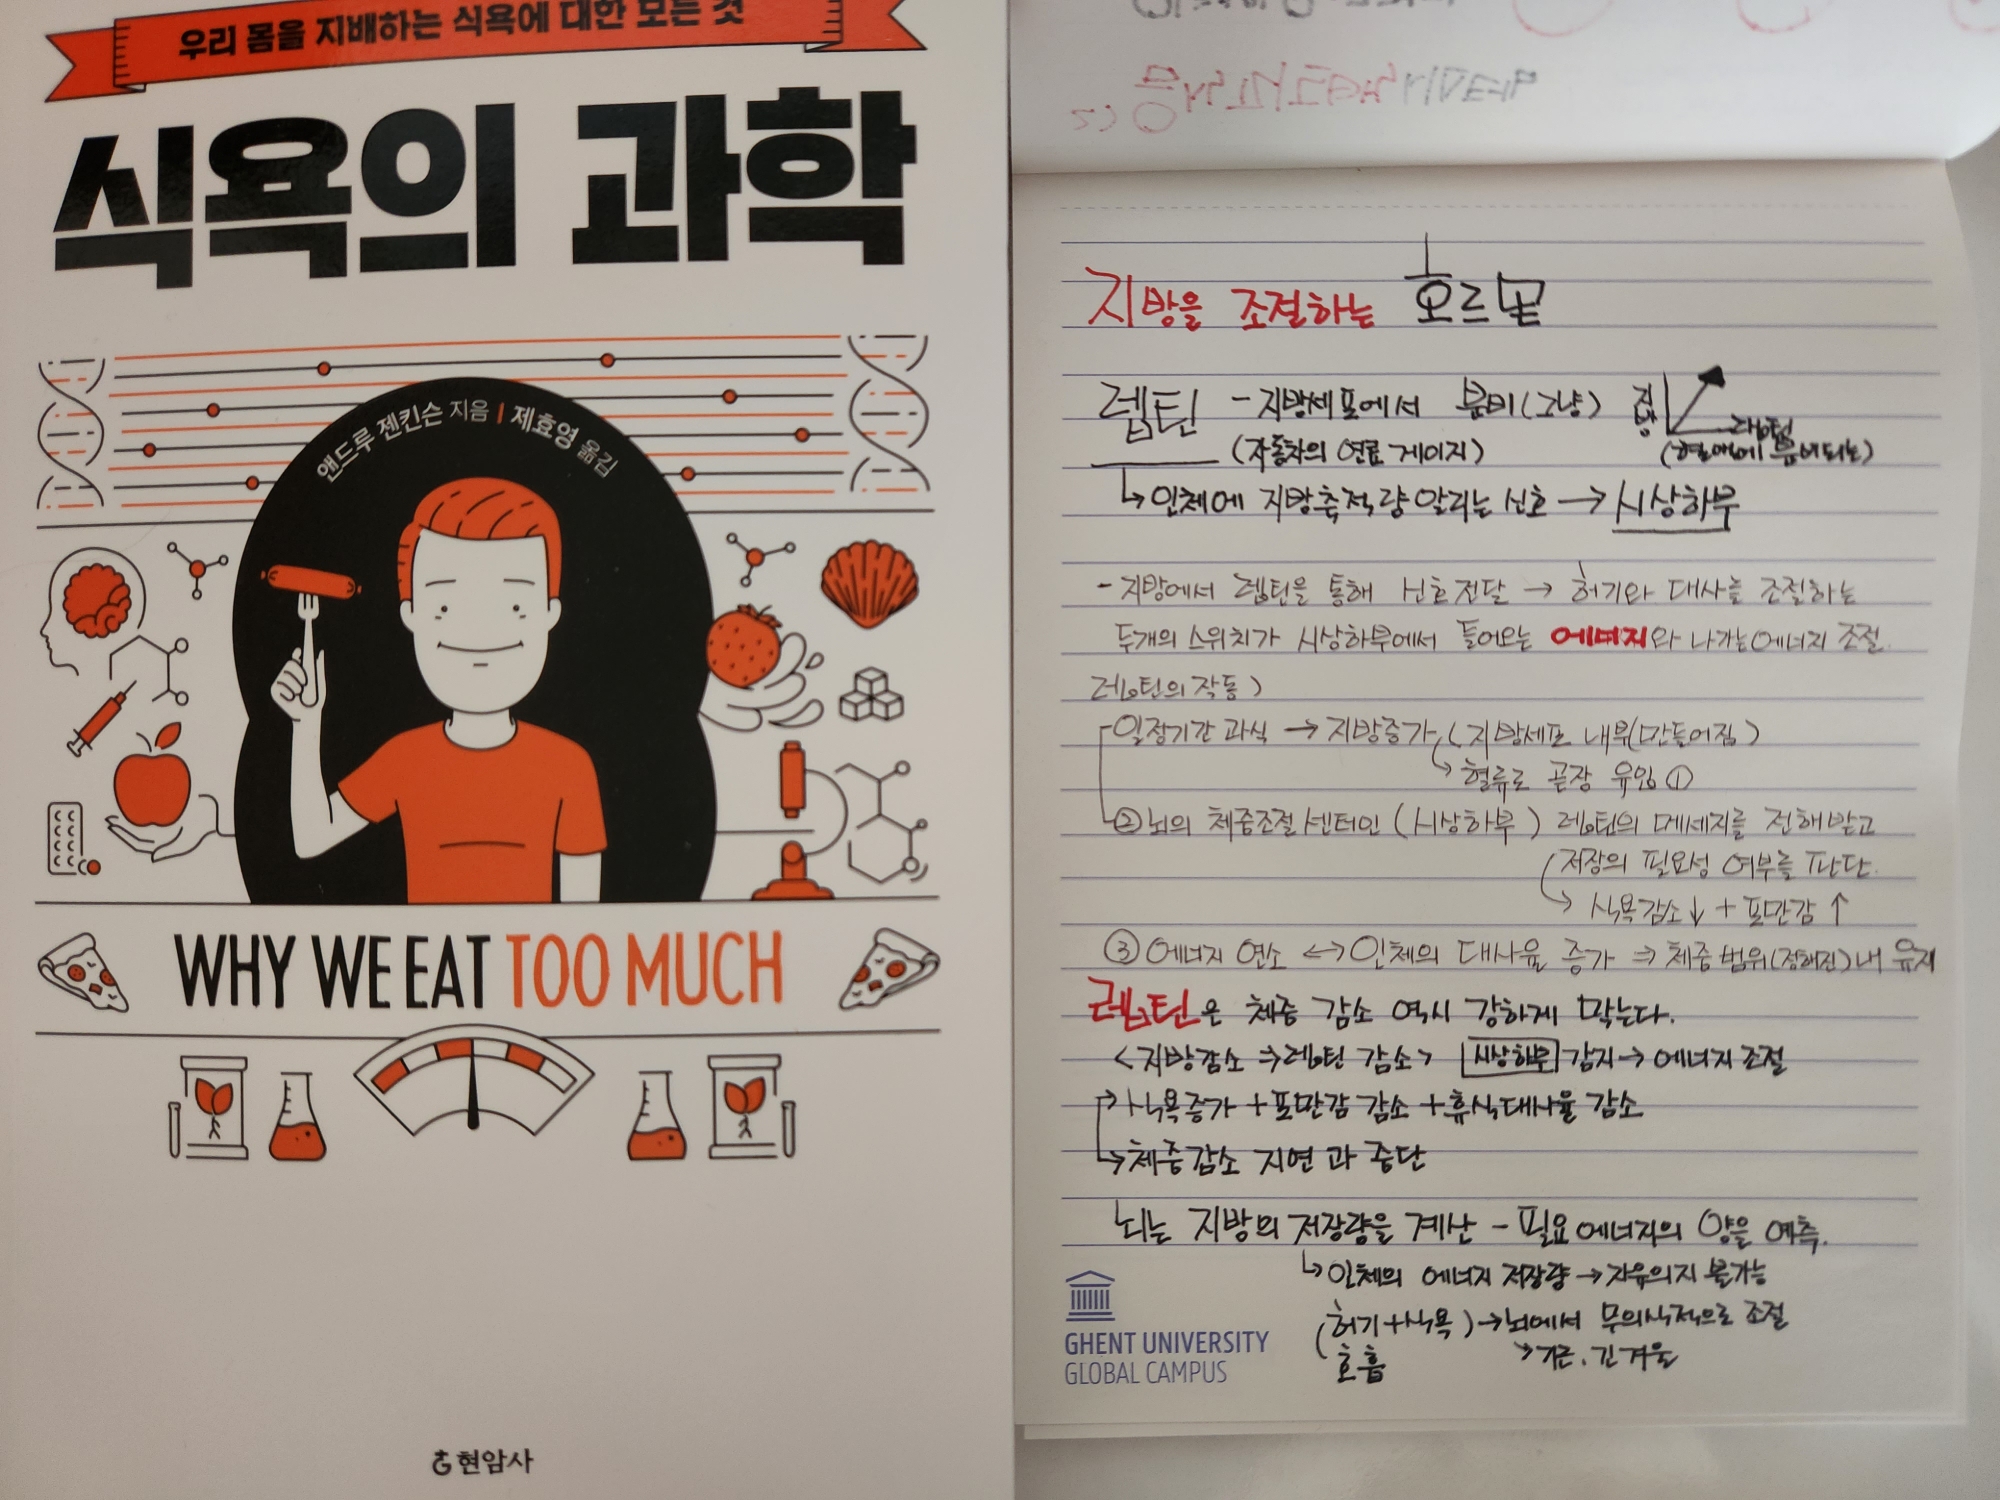 우리 몸을 지배하는 식욕에 대한 모든 것
식욕의 과학
앤드루 젠킨슨 지음 | 제효영 옮김
WHY WE EAT TOO MUCH
현암사
지방을 조절하는 호르몬
렙틴 - 지방세포에서 분비(그냥)
지방
렙틴
(자동차의 연료 게이지)
(혈액에 분비되는)
↳ 인체에 지방축적량 알리는 신호 → 시상하부
- 지방에서 렙틴을 통해 신호전달 → 허기와 대사를 조절하는
두개의 스위치가 시상하부에서 들어오는 에너지와 나가는 에너지 조절.
렙틴의 작동)
일정기간 과식 → 지방증가 (지방세포 내부(만들어짐)
↳ 혈류로 곧장 유입 ①
② 뇌의 체중조절 센터인 (시상하부) 렙틴의 메세지를 전해받고
(저장의 필요성 여부를 판단.
↳ 식욕감소↓ + 포만감↑
③ 에너지 연소 ↔ 인체의 대사율 증가 ⇒ 체중 범위(정해진)내 유지
렙틴은 체중 감소 역시 강하게 막는다.
<지방감소 ⇒ 렙틴 감소> 시상하부 감지 → 에너지 조절
→ 식욕증가 + 포만감 감소 + 휴식대사율 감소
↳ 체중감소 지연 과 중단
뇌는 지방의 저장량을 계산 - 필요 에너지의 양을 예측.
↳ 인체의 에너지 저장량 → 자유의지 불가능
(허기+식욕) → 뇌에서 무의식적으로 조절
호흡
↘ 기근, 긴 겨울
GHENT UNIVERSITY
GLOBAL CAMPUS